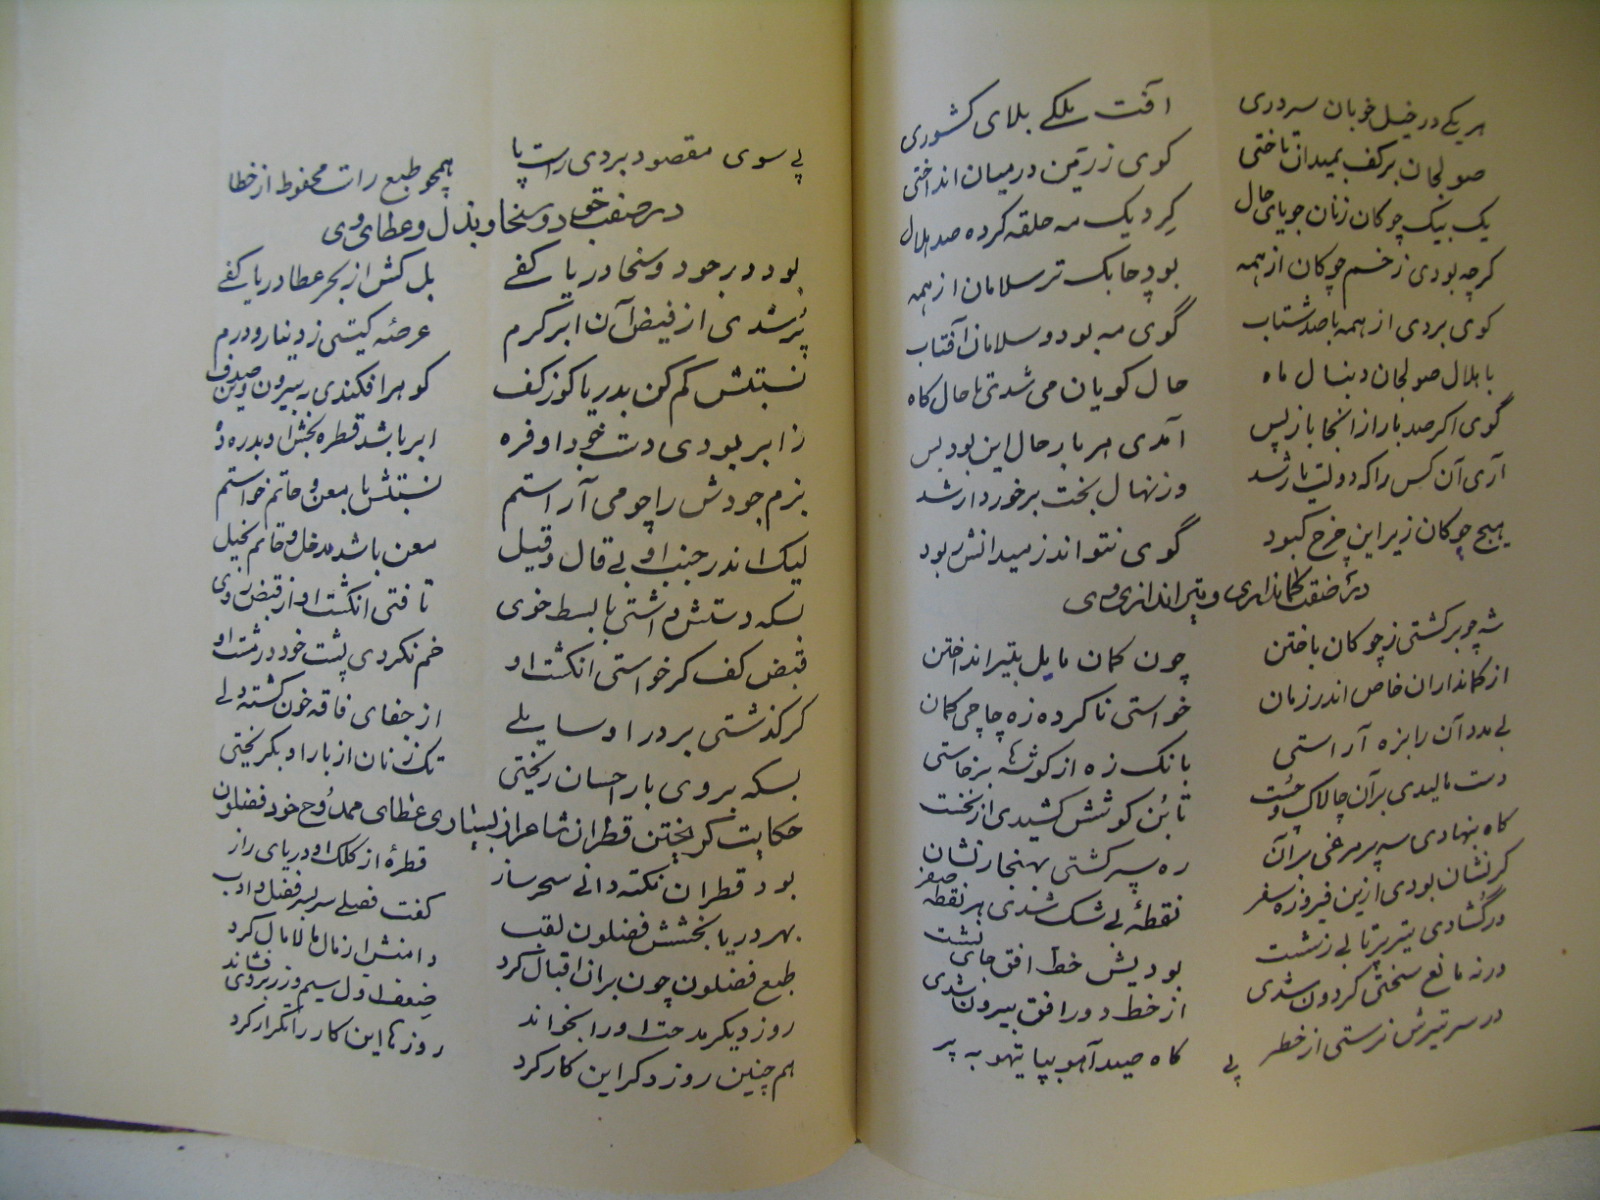 هر یکی در خیل خوبان سروری
آفت ملکی بلای کشوری
صولجان بر کف بمیدان تاختی
کوی زرین در میان انداختی
یک بیک چوکان زنان جویای حال
کرد یک مه حلقه کرده صد هلال
کرچه بودی زخم چوکان از همه
بود چابک تر سلامان از همه
کوی بردی از همه با صد شتاب
گوی مه بود و سلامان آفتاب
با هلال صولجان دنبال ماه
حال کویان می شدی تا حال کاه
گوی اکر صد بار از انجا باز پس
آمدی هر بار حال این بود بس
آری آن کس را که دولت یار شد
وز نهال بخت برخوردار شد
هیچ چوکان زیر این چرخ کبود
گوی نتواند ز میدانش ربود
در صفت کمانداری و تیراندازی وی
شه چو برکشتی ز چوکان باختن
چون کمان مایل بتیر انداختن
از کمانداران خاص اندر زمان
خواستی ناکرده زه چاچی کمان
بی مدد آن را بزه آراستی
بانک زه از کوشه ها برخاستی
دست مالیدی بر آن چالاک و چست
تا بن کوشش کشیدی از نخست
کاه بنهادی سه پر مرغی بر آن
ره سپر کشتی بهنجار نشان
کر نشان بودی ازین فیروزه سفر
نقطهٔ بی شک شدی هر نقطه صفر
ور گشادی تیر پرتابی ز شست
بودیش خط افق جای نشست
ورنه مانع سختی کردون شدی
از خط دور افق بیرون شدی
در سر تیرش نرستی از خطر
کاه صید آهو بپا تیهو به پر
پی
پی سوی مقصود بردی راست پا
همچو طبع راست محفوظ از خطا
در صفت جود و سخا و بذل و عطای وی
بود در جود و سخا دریا کفی
بل کش از بحر عطا دریا کفی
پر شدی از فیض آن ابر کرم
عرصهٔ کیتی ز دینار و درم
نسبتش کم کن بدریا کوز کف
کوهر افکندی به بیرون وین صدف
ز ابر بودی دست جود او فره
ابر باشد قطره بخش او بدره ده
بزم جودش را چو می آراستم
نسبتش با معن و حاتم خواستم
لیک اندر جنب او بی قال و قیل
معن باشد مدخل و حاتم بخیل
بسکه دستش داشتی با بسط خوی
تافتی انکشت او از قبض روی
قبض کف کر خواستی انکشت او
خم نکردی پشت خود در مشت او
کر کذشتی بر در او سایلی
از جفای فاقه خون کشته دلی
بسکه بروی بار احسان ریختی
تک زنان از بار او بکریختی
حکایت کریختن قطران شاعر از بسیاری عطای ممدوح خود فضلون
بود قطران نکته دانی سحر ساز
قطرهٔ از کلک او دریای راز
بهر دریا بخشش فضلون لقب
کفت فصلی سر بسر فضل و ادب
طبع فضلون چون بران اقبال کرد
دامنش از مال مالامال کرد
روز دیکر مدحت او را بخواند
ضعف اول سیم و زر بروی فشاند
هم چنین روز دکر این کار کرد
روزها این کار را تکرار کرد